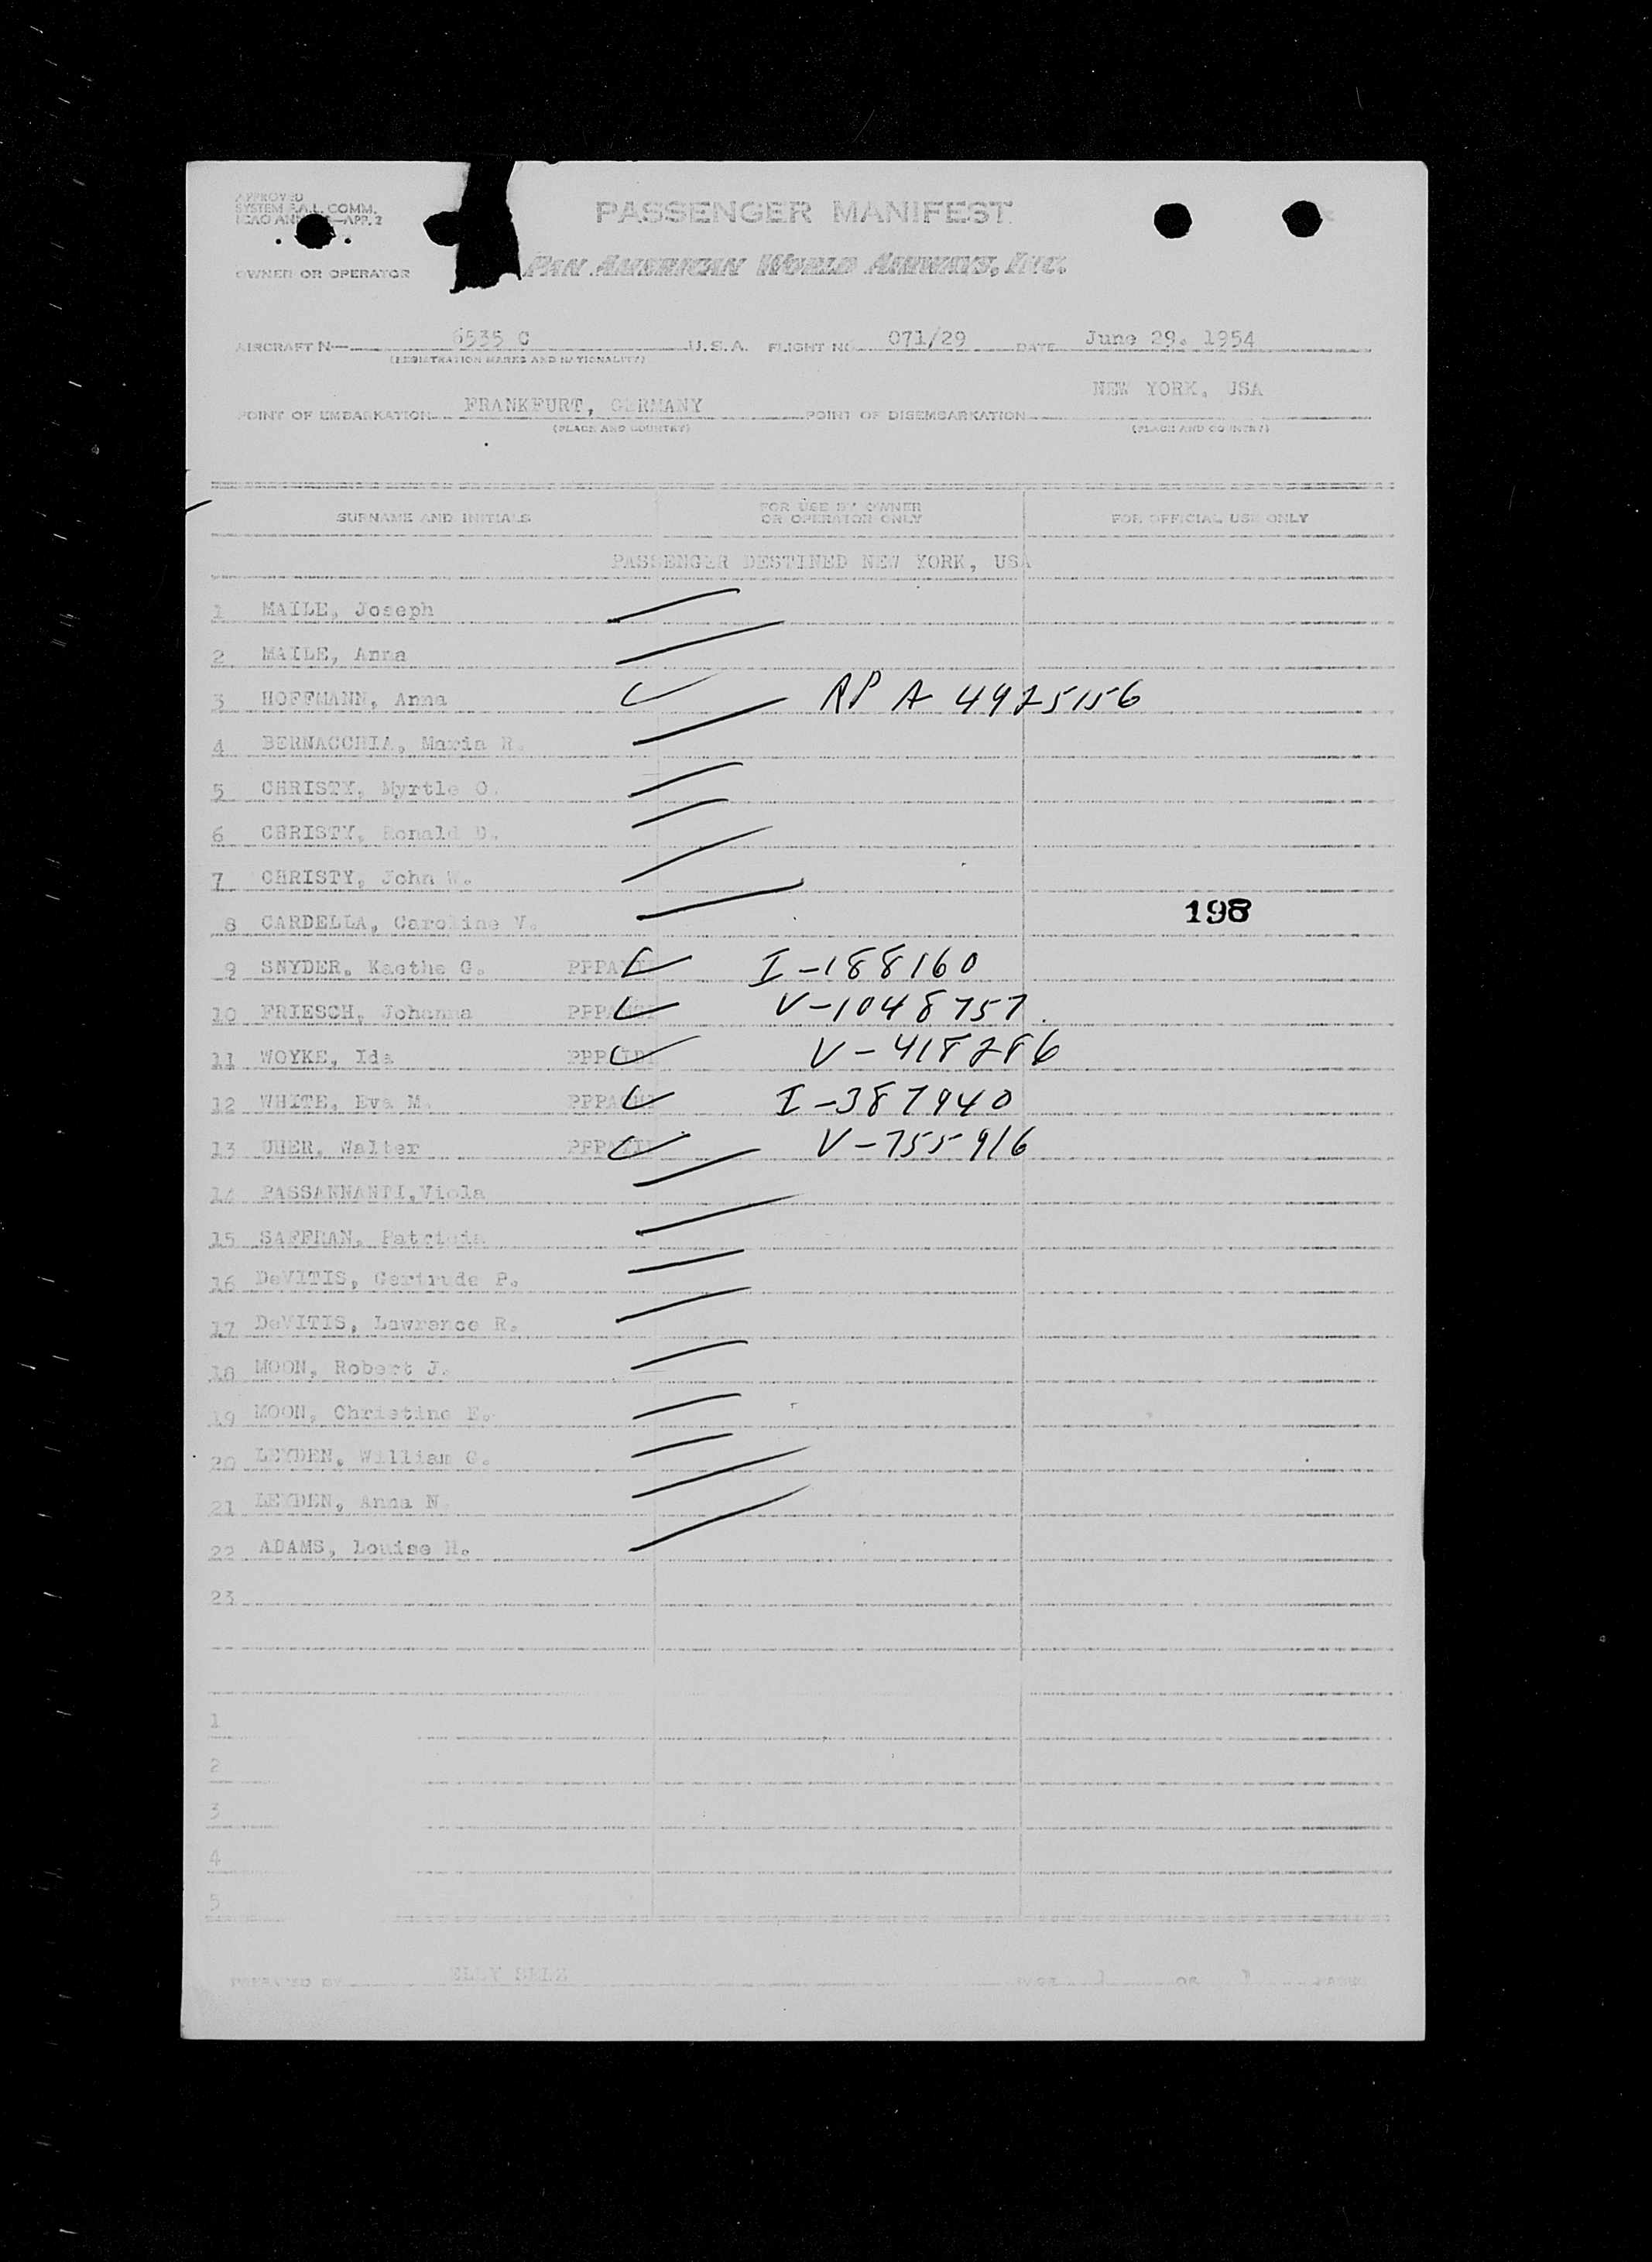 APPROVED
SYSTEM F.A.L. COMM.
ICAO —APP. 2
PASSENGER MANIFEST
OWNER OR OPERATOR
PAN AMERICAN WORLD AIRWAYS, INC.
AIRCRAFT N— 6535 C U.S.A. FLIGHT NO. 071/29 DATE June 29. 1954
(REGISTRATION MARKS AND NATIONALITY)
NEW YORK, USA
POINT OF EMBARKATION FRANKFURT, GERMANY POINT OF DISEMBARKATION
(PLACE AND COUNTRY) (PLACE AND COUNTRY)
SURNAME AND INITIALS FOR USE BY OWNER OR OPERATOR ONLY FOR OFFICIAL USE ONLY
PASSENGER DESTINED NEW YORK, USA
1 MAILE, Joseph
2 MAILE, Anna
3 HOFFMANN, Anna RP A 4925156
4 BERNACCHIA, Maria R.
5 CHRISTY, Myrtle O.
6 CHRISTY, Ronald D.
7 CHRISTY, John W.
8 CARDELLA, Caroline V. 198
9 SNYDER, Kaethe G. I-188160
10 FRIESCH, Johanna V-1048757
11 WOYKE, Ida V-418286
12 WHITE, Eva M. I-387940
13 UHER, Walter V-755916
14 PASSANNANTI, Viola
15 SAFFRAN, Patricia
16 DeVITIS, Gertrude P.
17 DeVITIS, Lawrence R.
18 MOON, Robert J.
19 MOON, Christine E.
20 LEYDEN, William G.
21 LEYDEN, Anna N.
22 ADAMS, Louise H.
23
1
2
3
4
5
PREPARED BY ELLY